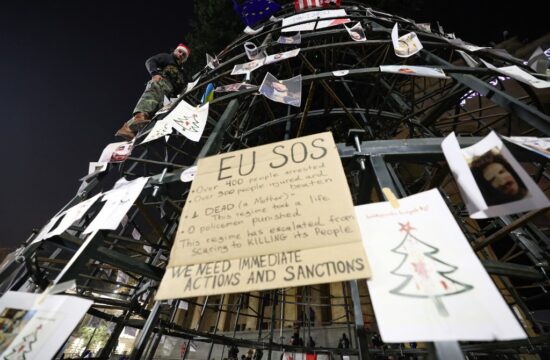 EU SOS
Over 400 people arrested
Over 300 people injured and
beaten
1 DEAD (a Mother)-
This regime took a life
0 policemen punished
This regime has escalated from
scaring to KILLING its People
WE NEED IMMEDIATE
ACTIONS AND SANCTIONS